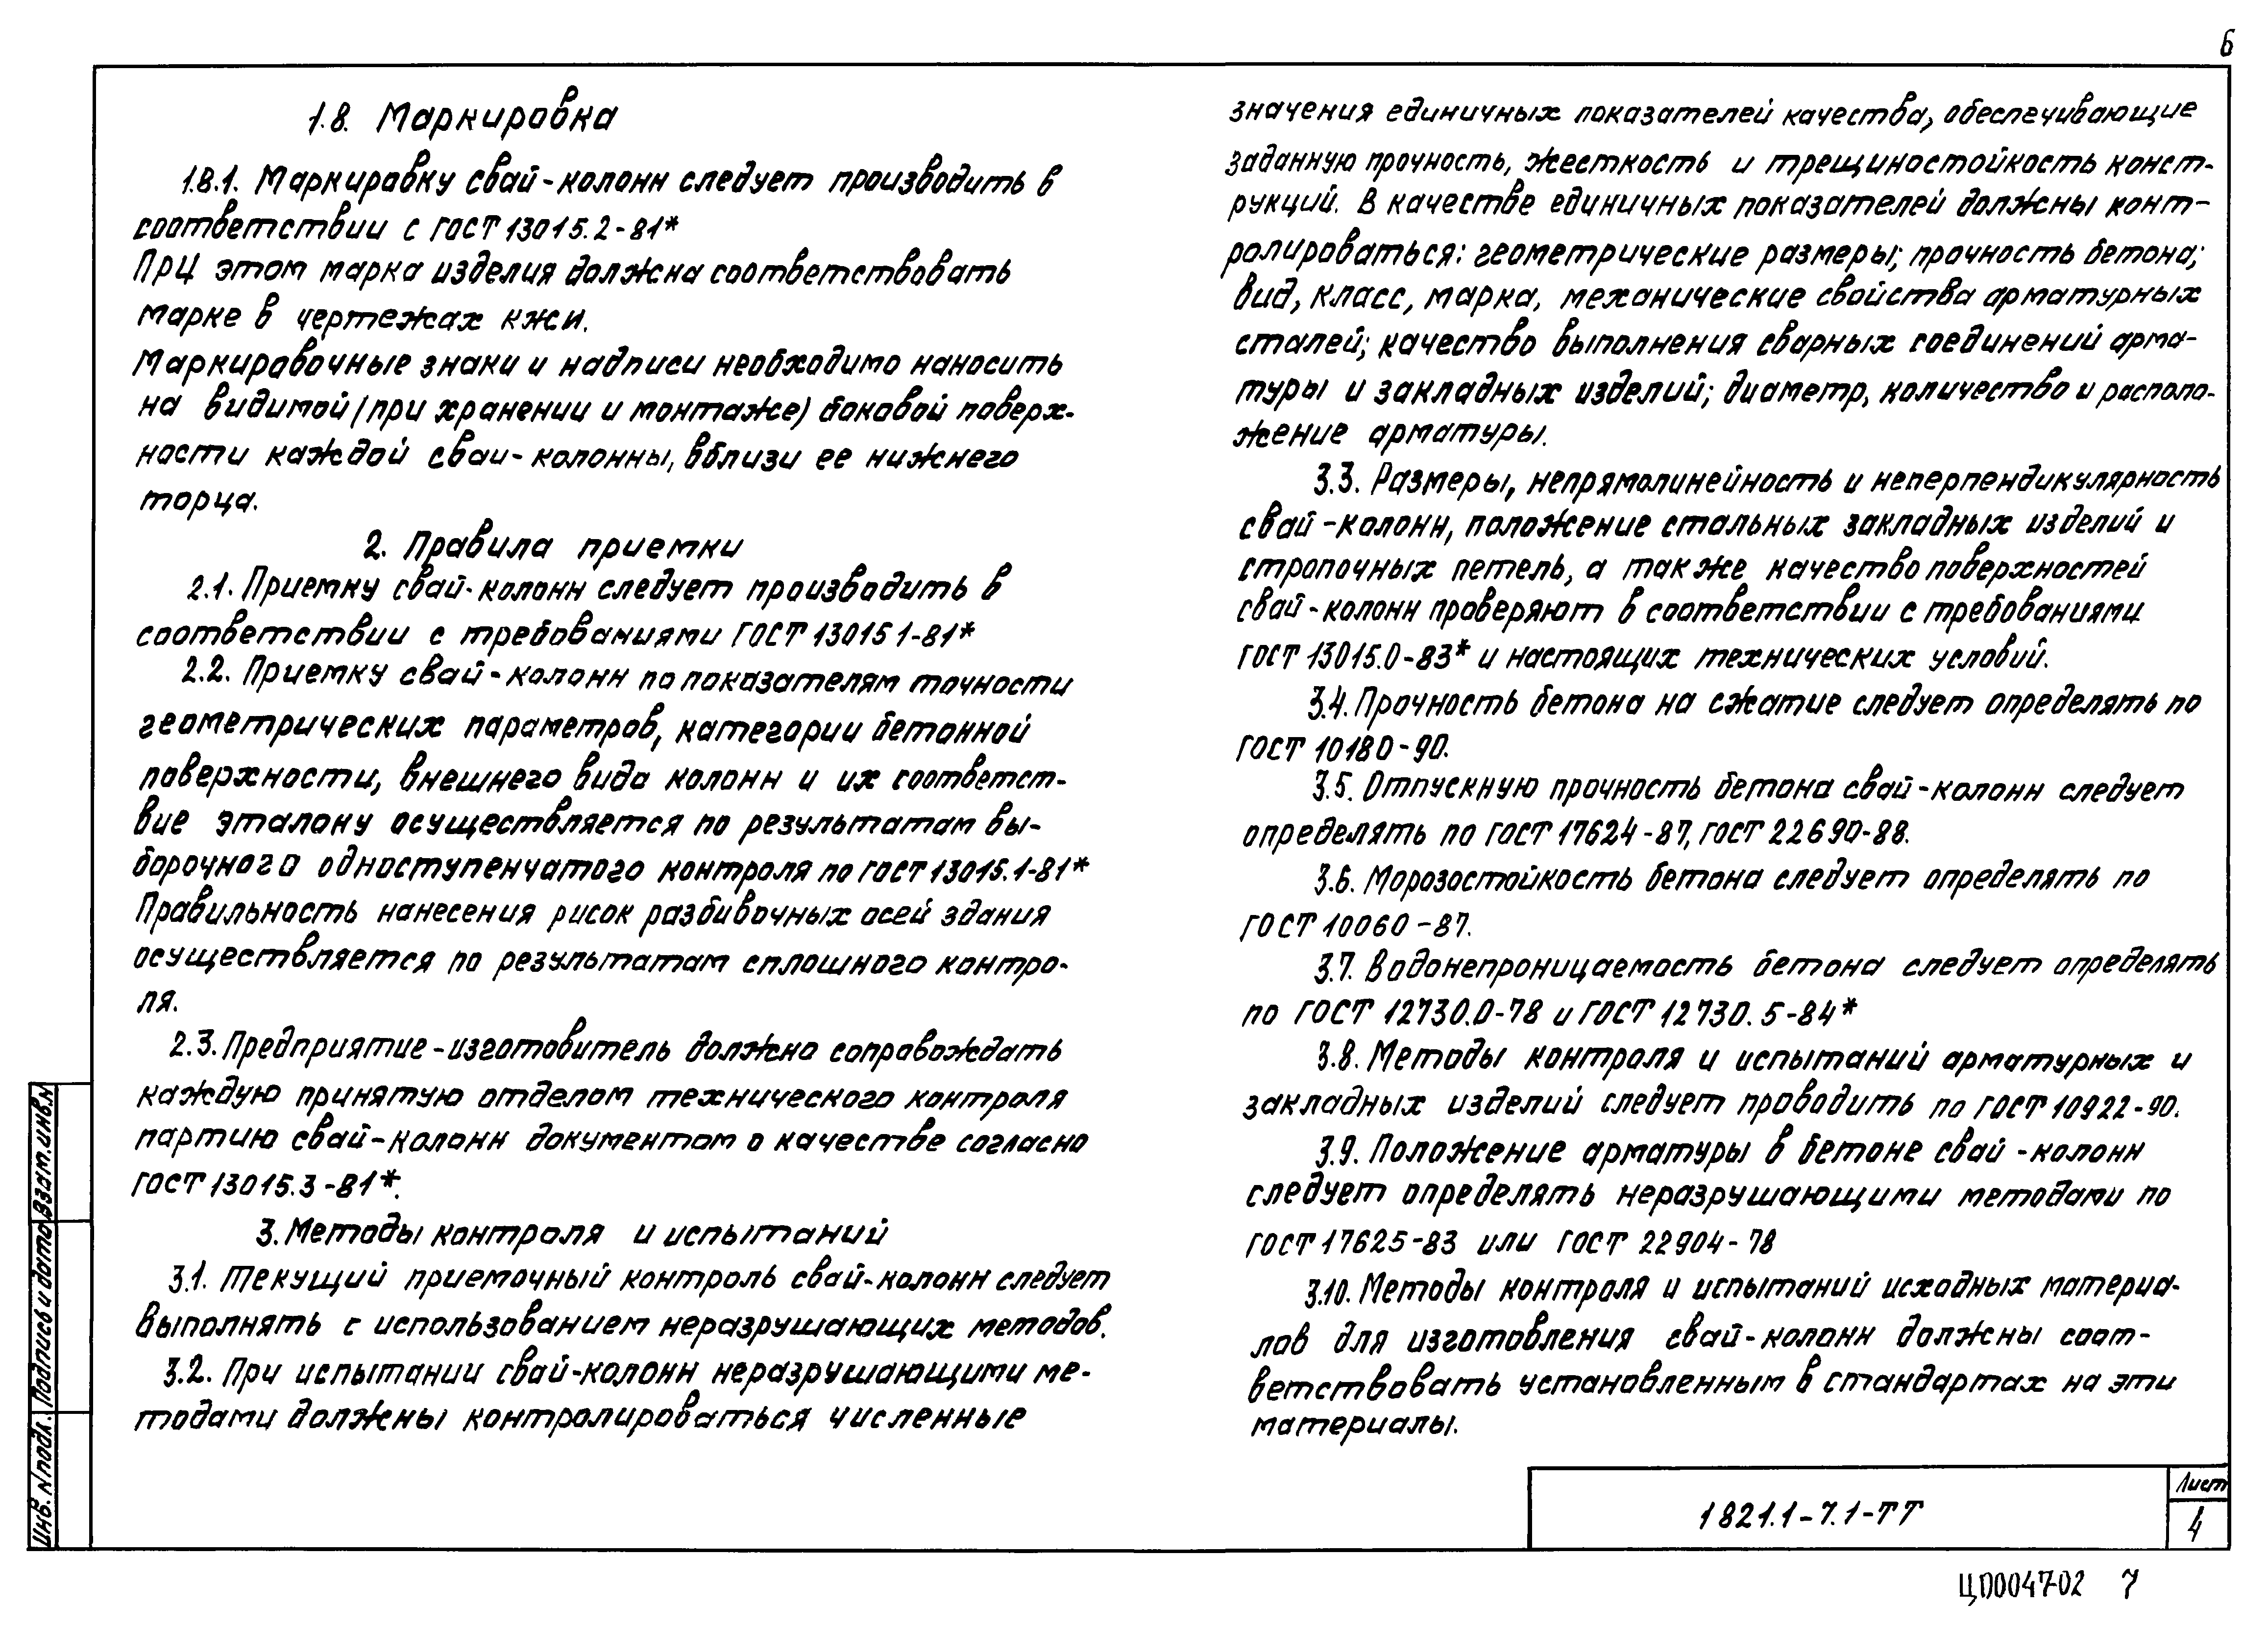 6
1.8. Маркировка
1.8.1. Маркировку свай-колонн следует производить в
соответствии с ГОСТ 13015.2-81*
При этом марка изделия должна соответствовать
марке в чертежах КЖИ.
Маркировочные знаки и надписи необходимо наносить
на видимой (при хранении и монтаже) боковой поверх-
ности каждой сваи-колонны, вблизи ее нижнего
торца.
2. Правила приемки
2.1. Приемку свай-колонн следует производить в
соответствии с требованиями ГОСТ 13015 1-81*
2.2. Приемку свай-колонн по показателям точности
геометрических параметров, категории бетонной
поверхности, внешнего вида колонн и их соответст-
вие эталону осуществляется по результатам вы-
борочного одноступенчатого контроля по ГОСТ 13015.1-81*
Правильность нанесения рисок разбивочных осей здания
осуществляется по результатам сплошного контро-
ля.
2.3. Предприятие-изготовитель должно сопровождать
каждую принятую отделом технического контроля
партию свай-колонн документом о качестве согласно
ГОСТ 13015.3-81*.
3. Методы контроля и испытаний
3.1. Текущий приемочный контроль свай-колонн следует
выполнять с использованием неразрушающих методов.
3.2. При испытании свай-колонн неразрушающими ме-
тодами должны контролироваться численные
значения единичных показателей качества, обеспечивающие
заданную прочность, жесткость и трещиностойкость конст-
рукций. В качестве единичных показателей должны конт-
ролироваться: геометрические размеры; прочность бетона;
вид, класс, марка, механические свойства арматурных
сталей; качество выполнения сварных соединений арма-
туры и закладных изделий; диаметр, количество и располо-
жение арматуры.
3.3. Размеры, непрямолинейность и неперпендикулярность
свай-колонн, положение стальных закладных изделий и
стропочных петель, а также качество поверхностей
свай-колонн проверяют в соответствии с требованиями
ГОСТ 13015.0-83* и настоящих технических условий.
3.4. Прочность бетона на сжатие следует определять по
ГОСТ 10180-90.
3.5. Отпускную прочность бетона свай-колонн следует
определять по ГОСТ 17624-87, ГОСТ 22690-88.
3.6. Морозостойкость бетона следует определять по
ГОСТ 10060-87.
3.7. Водонепроницаемость бетона следует определять
по ГОСТ 12730.0-78 и ГОСТ 12730.5-84*
3.8. Методы контроля и испытаний арматурных и
закладных изделий следует проводить по ГОСТ 10922-90.
3.9. Положение арматуры в бетоне свай-колонн
следует определять неразрушающими методами по
ГОСТ 17625-83 или ГОСТ 22904-78
3.10. Методы контроля и испытаний исходных материа-
лов для изготовления свай-колонн должны соот-
ветствовать установленным в стандартах на эти
материалы.
Инв. N подл. Подпись и дата Взам. инв. N
1821.1-7.1-ТТ
Лист
4
ЦП0047-02 7